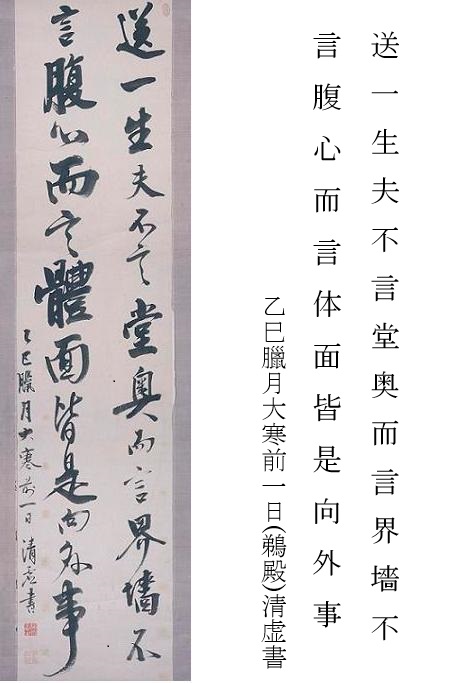 送一生夫不言堂奥而言界墻不
言腹心而言體面皆是向外事
乙巳臘月大寒前一日清虚書
送一生夫不言堂奥而言界墻不
言腹心而言体面皆是向外事
乙巳臘月大寒前一日(鵜殿)清虚書